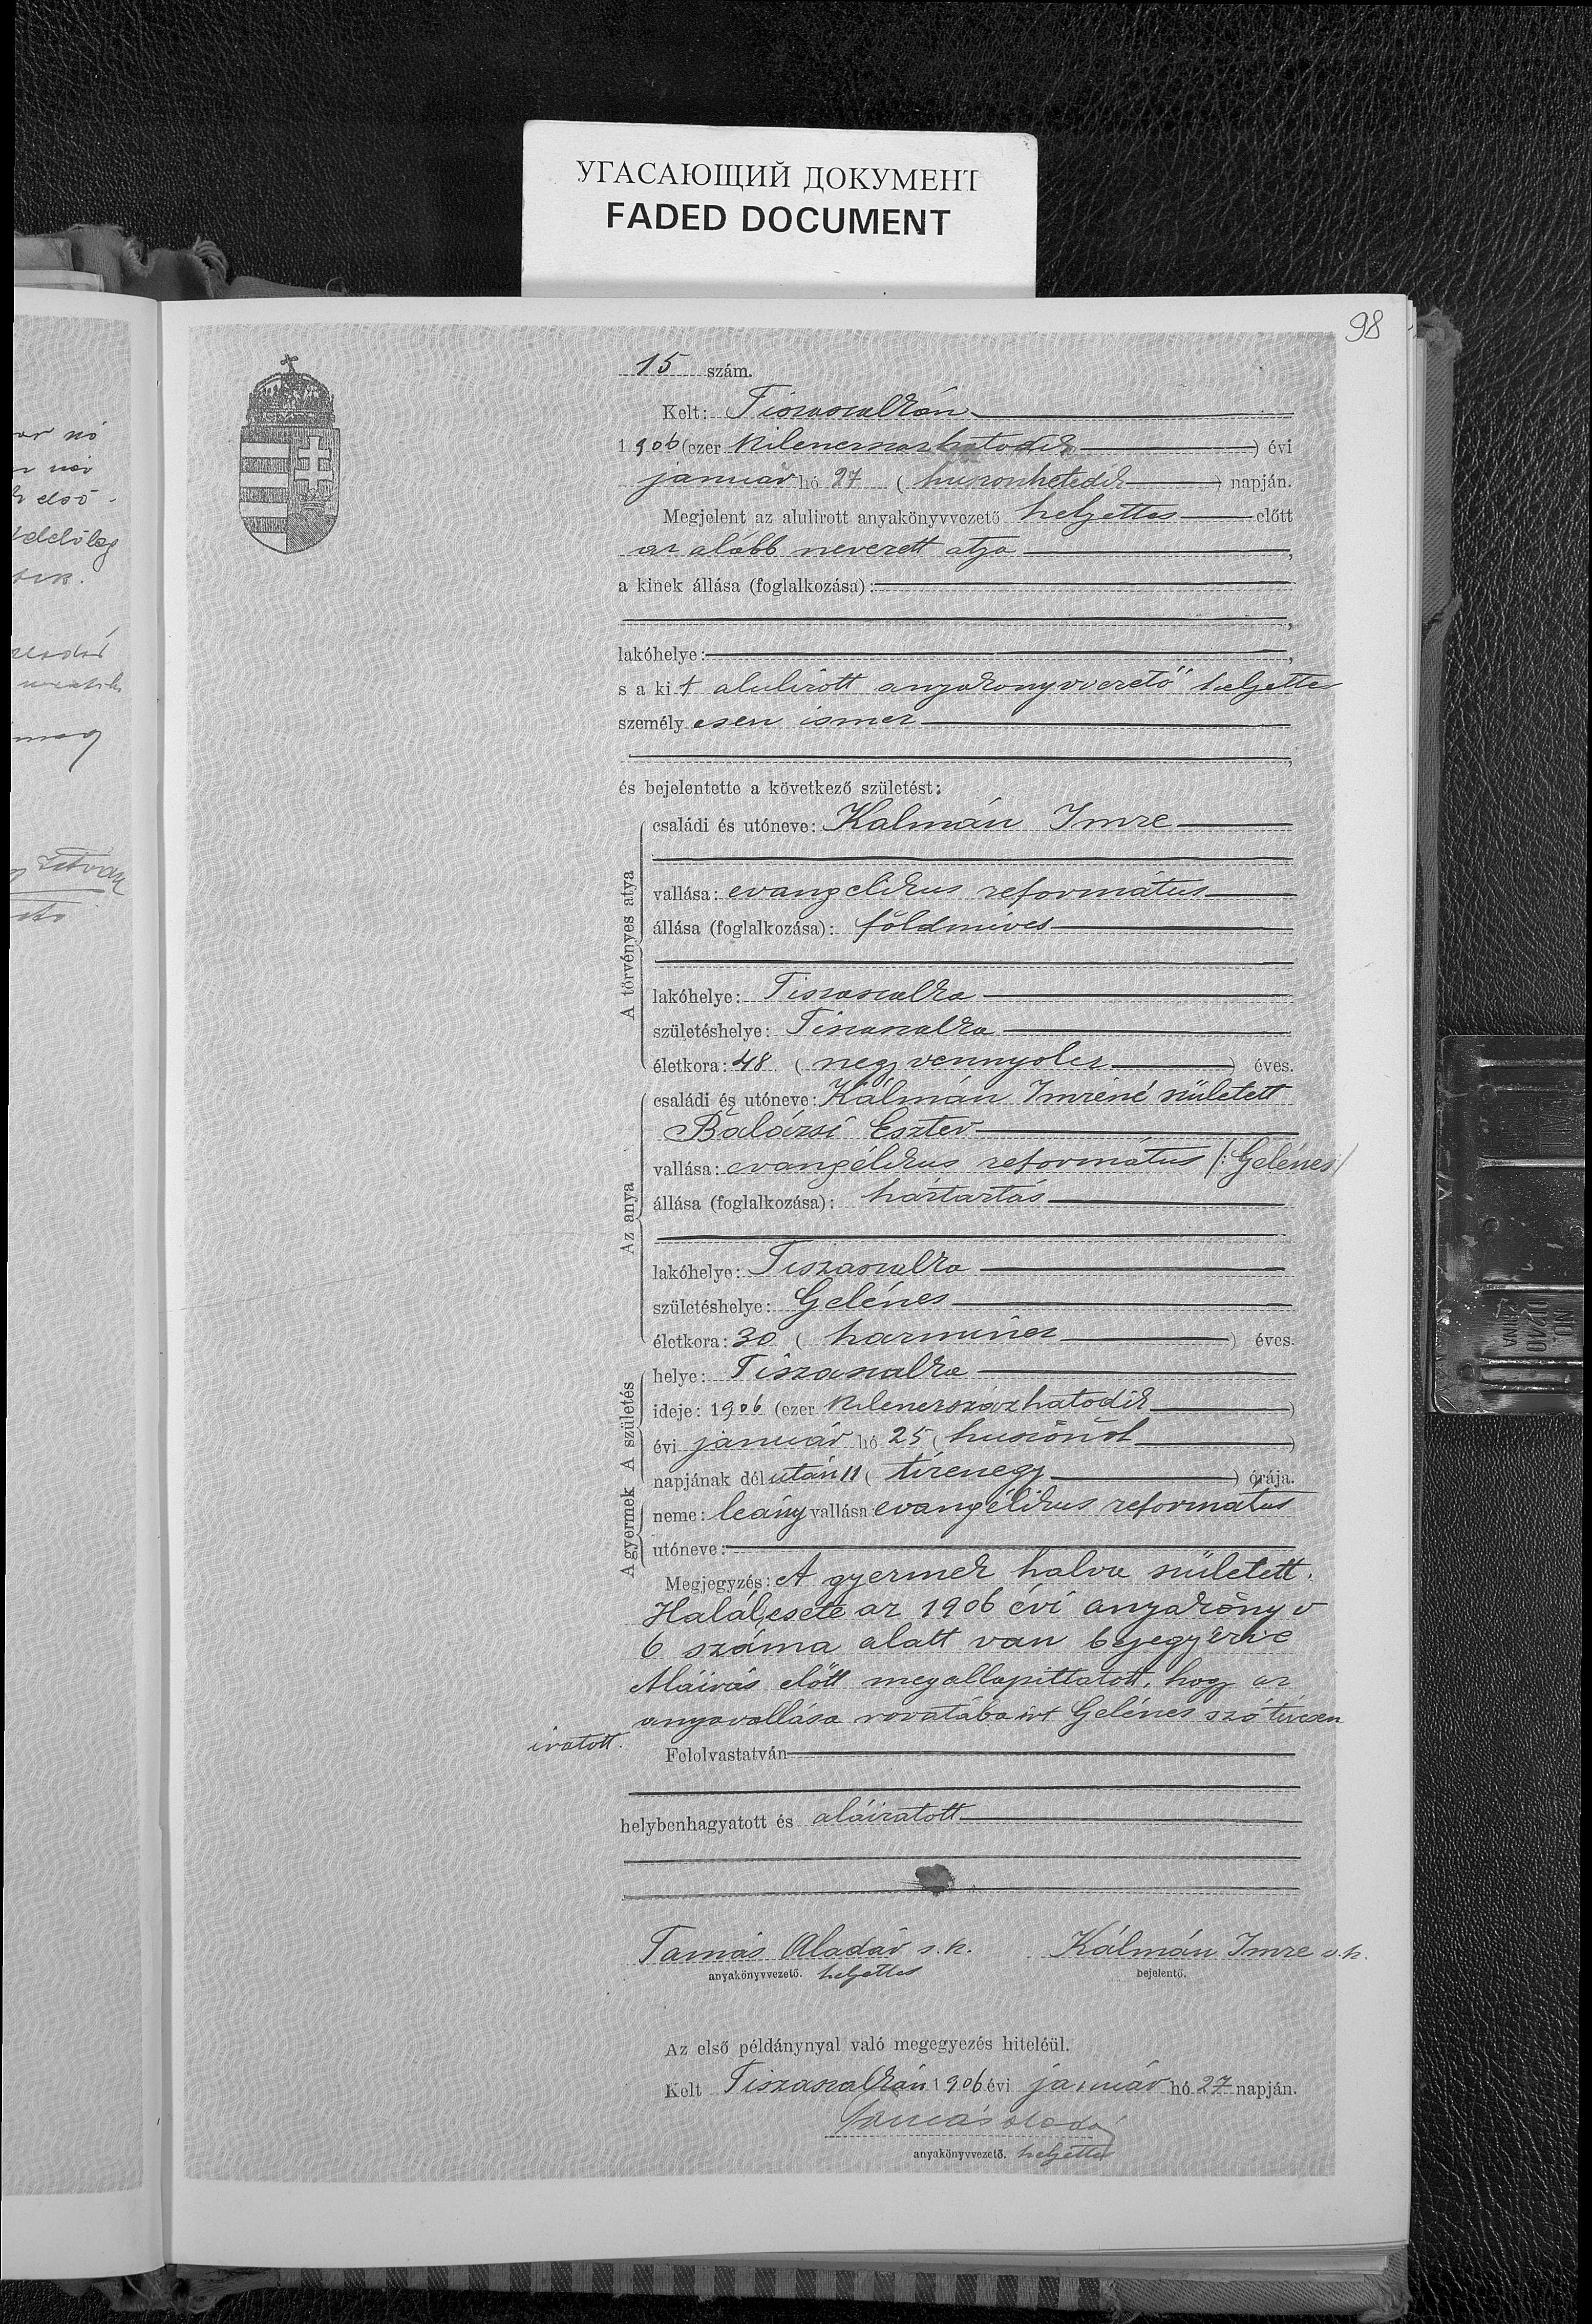 УГАСАЮЩИЙ ДОКУМЕНТ
FADED DOCUMENT
98
15 szám.
Kelt: Tiszaszalkán
1906 (ezer kilenczszázhatodik) évi
január hó 27 (huszonhetedik) napján.
Megjelent az alulirott anyakönyvvezető helyettes előtt
az alább nevezett atya,
a kinek állása (foglalkozása):
lakóhelye:
s a kit alulirott anyakönyvvezető helyettes
személyesen ismer
és bejelentette a következő születést:
A törvényes atya
családi és utóneve: Kalmán Imre
vallása: evangelikus református
állása (foglalkozása): földmives
lakóhelye: Tiszaszalka
születéshelye: Tiszaszalka
életkora: 48 (negyvennyolcz) éves.
Az anya
családi és utóneve: Kálmán Imréné született
Balázsi Eszter
vallása: evangélikus református /: Gelénes :/
állása (foglalkozása): háztartás
lakóhelye: Tiszaszalka
születéshelye: Gelénes
életkora: 30 (harmincz) éves.
A gyermek A születés
helye: Tiszaszalka
ideje: 1906 (ezer kilenczszázhatodik)
évi január hó 25 (huszonöt)
napjának délután 11 (tizenegy) órája.
neme: leány vallása evangélikus református
utóneve:
Megjegyzés: A gyermek halva született.
Halálesete az 1906 évi anyakönyv
6 száma alatt van bejegyezve
Aláirás előtt megallapittatott, hogy az
anyavallása rovatába irt Gelénes szó tévesen
iratott.
Felolvastatván
helybenhagyatott és aláiratott
Tamás Aladár s.k. Kálmán Imre s.k.
anyakönyvvezető. helyettes bejelentő.
Az első példánynyal való megegyezés hiteléül.
Kelt Tiszaszalkán 1906 évi január hó 27 napján.
Tamás Aladár
anyakönyvvezető. helyettes